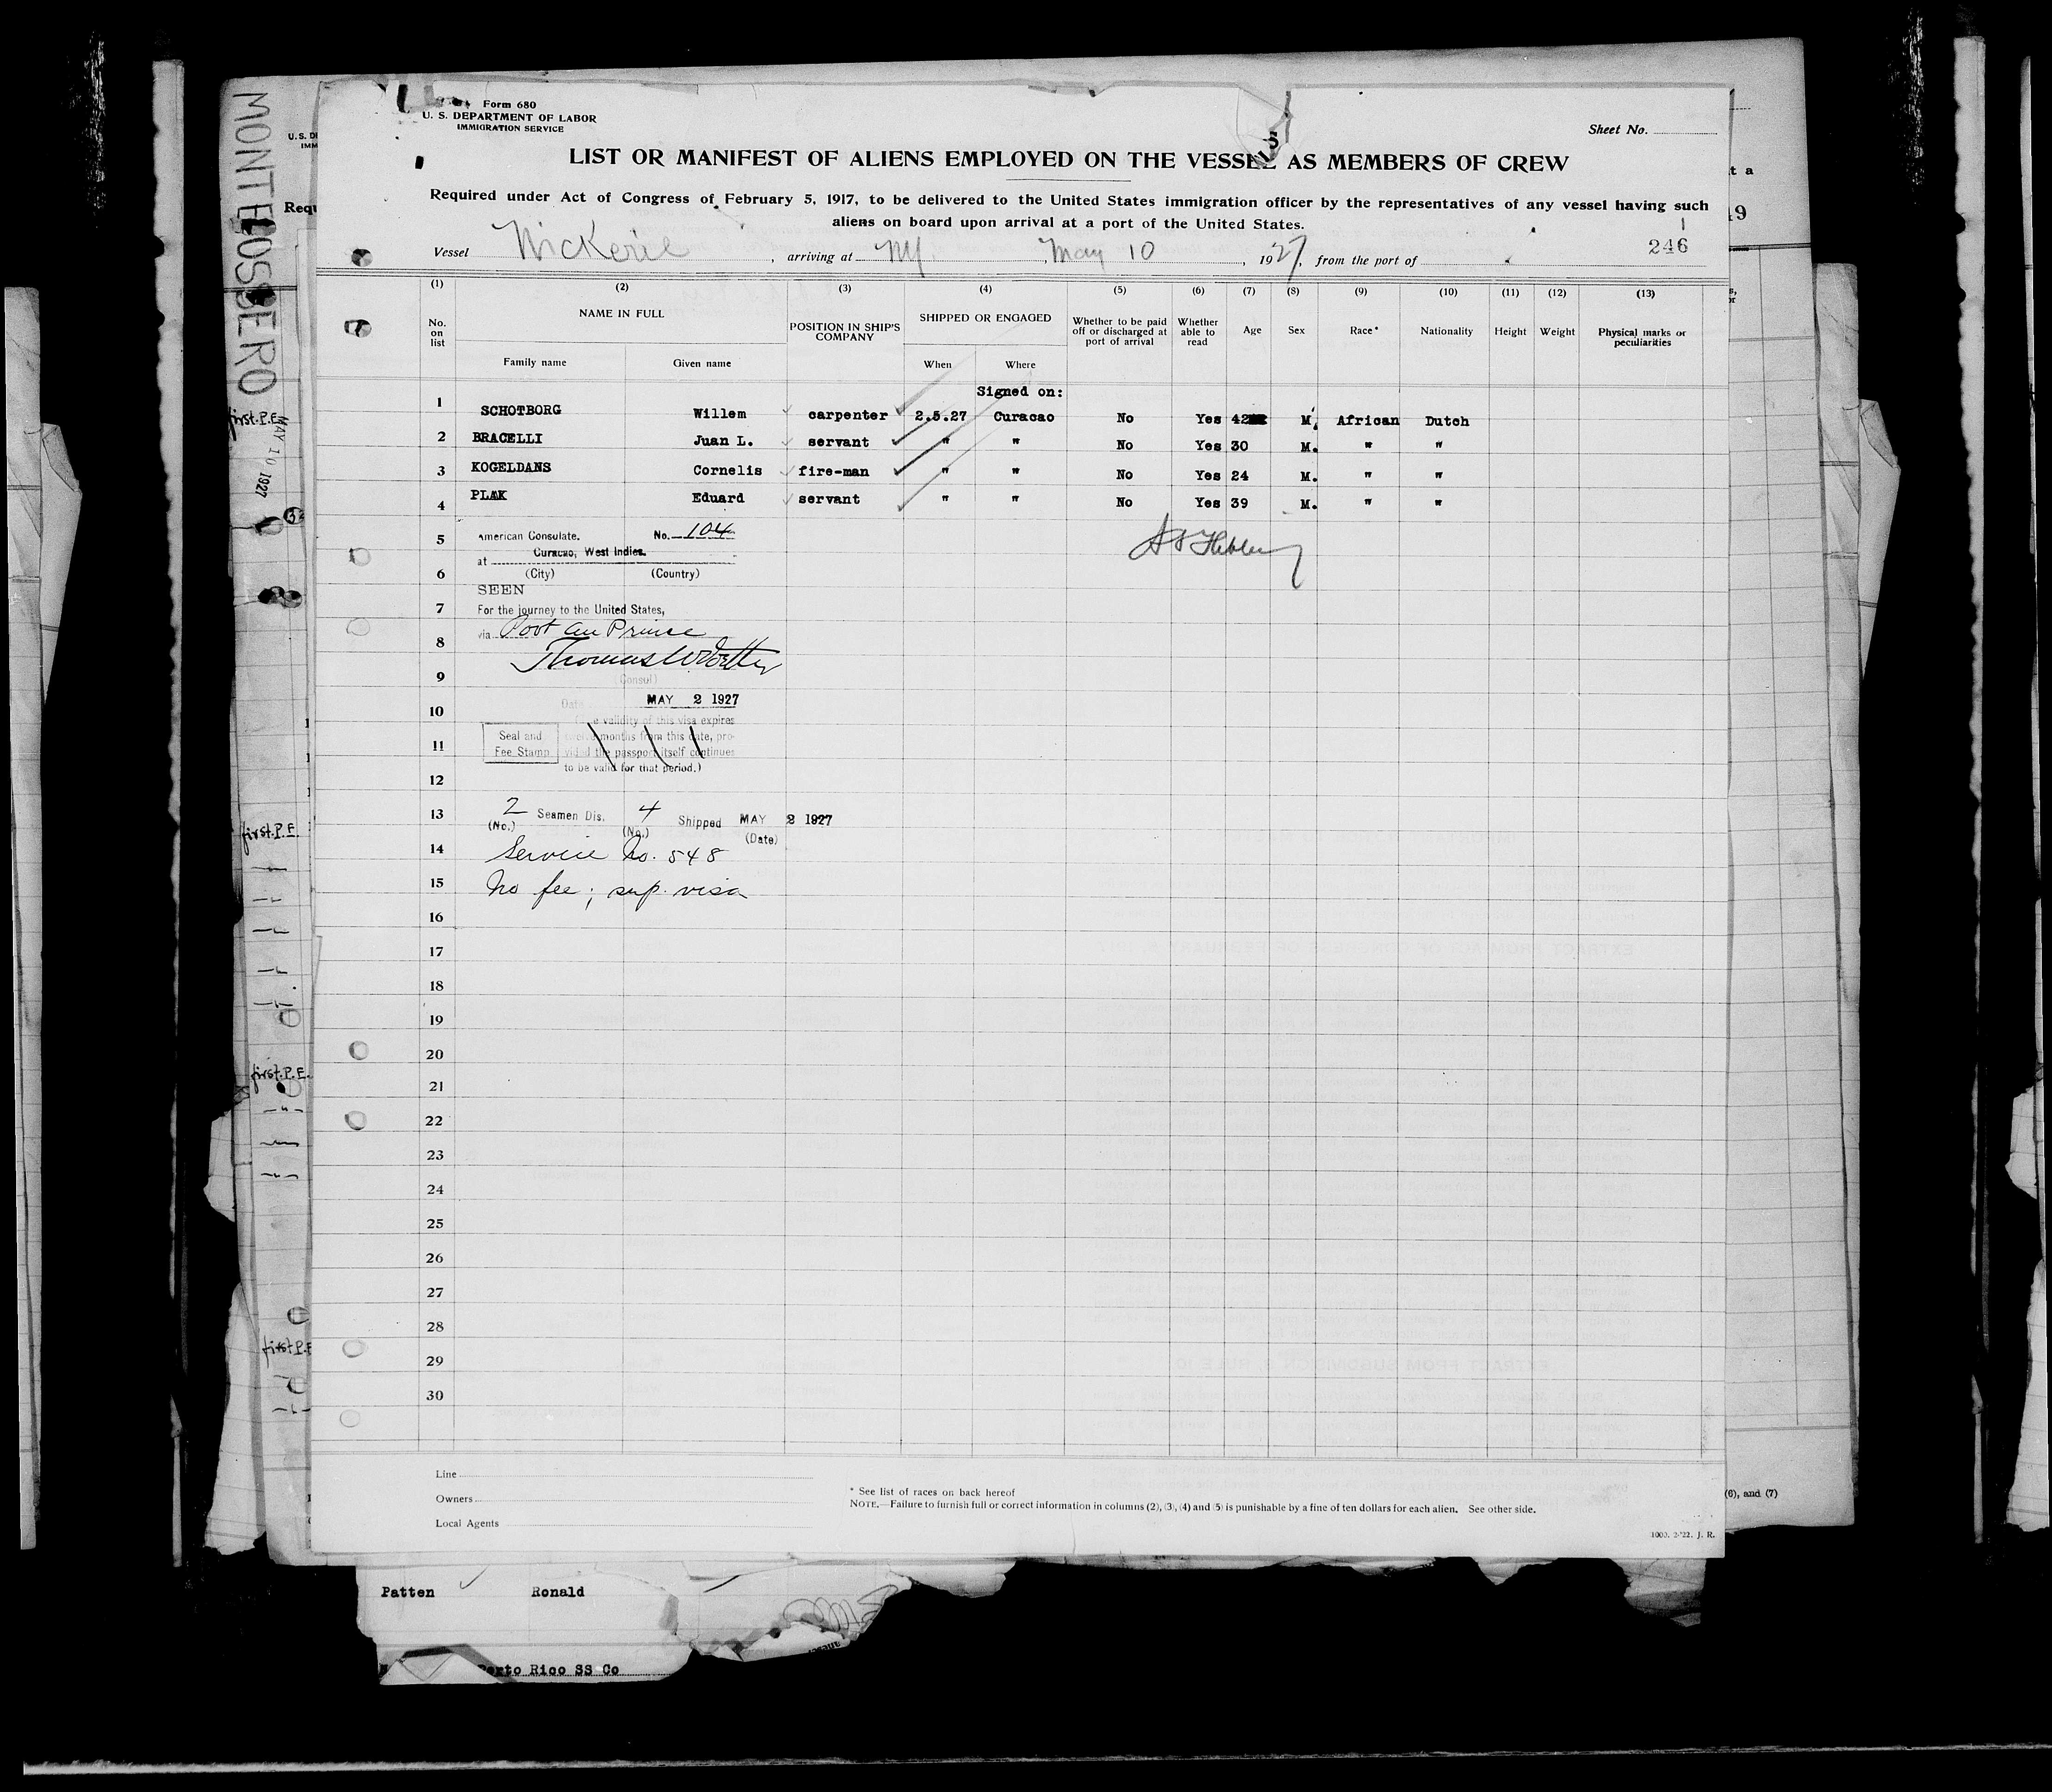 Form 680
U. S. DEPARTMENT OF LABOR
IMMIGRATION SERVICE
Sheet No.
LIST OR MANIFEST OF ALIENS EMPLOYED ON THE VESSEL AS MEMBERS OF CREW
Required under Act of Congress of February 5, 1917, to be delivered to the United States immigration officer by the representatives of any vessel having such
aliens on board upon arrival at a port of the United States.
246
Vessel Nickerie, arriving at NY, May 10, 1927, from the port of
(1) (2) (3) (4) (5) (6) (7) (8) (9) (10) (11) (12) (13)
No. on list NAME IN FULL POSITION IN SHIP'S COMPANY SHIPPED OR ENGAGED Whether to be paid off or discharged at port of arrival Whether able to read Age Sex Race* Nationality Height Weight Physical marks or peculiarities
Family name Given name When Where
Signed on:
1 SCHOTBORG Willem carpenter 2.5.27 Curacao No Yes 42 M. African Dutch
2 BRACELLI Juan L. servant " " No Yes 30 M. " "
3 KOGELDANS Cornelis fire-man " " No Yes 24 M. " "
4 PLAK Eduard servant " " No Yes 39 M. " "
5 American Consulate. No. 104
at Curacao, West Indies.
6 (City) (Country)
SEEN
7 For the journey to the United States,
8 via Port au Prince
9 (Consul)
10 Date MAY 2 1927
(The validity of this visa expires
11 Seal and Fee Stamp twelve months from this date, provided the passport itself continues
to be valid for that period.)
12
13 2 Seamen Dis. 4 Shipped MAY 2 1927
(No.) (No.) (Date)
14 Service No. 548
15 No fee; sup. visa
16
17
18
19
20
21
22
23
24
25
26
27
28
29
30
Line
Owners
Local Agents
* See list of races on back hereof
NOTE.—Failure to furnish full or correct information in columns (2), (3), (4) and (5) is punishable by a fine of ten dollars for each alien. See other side.
1000. 2-'22. J. R.
MONTE OSSERO
MAY 10 1927
first.P.E.
first.P.E.
first.P.E.
first P.E
(6), and (7)
Patten Ronald
Porto Rico SS Co